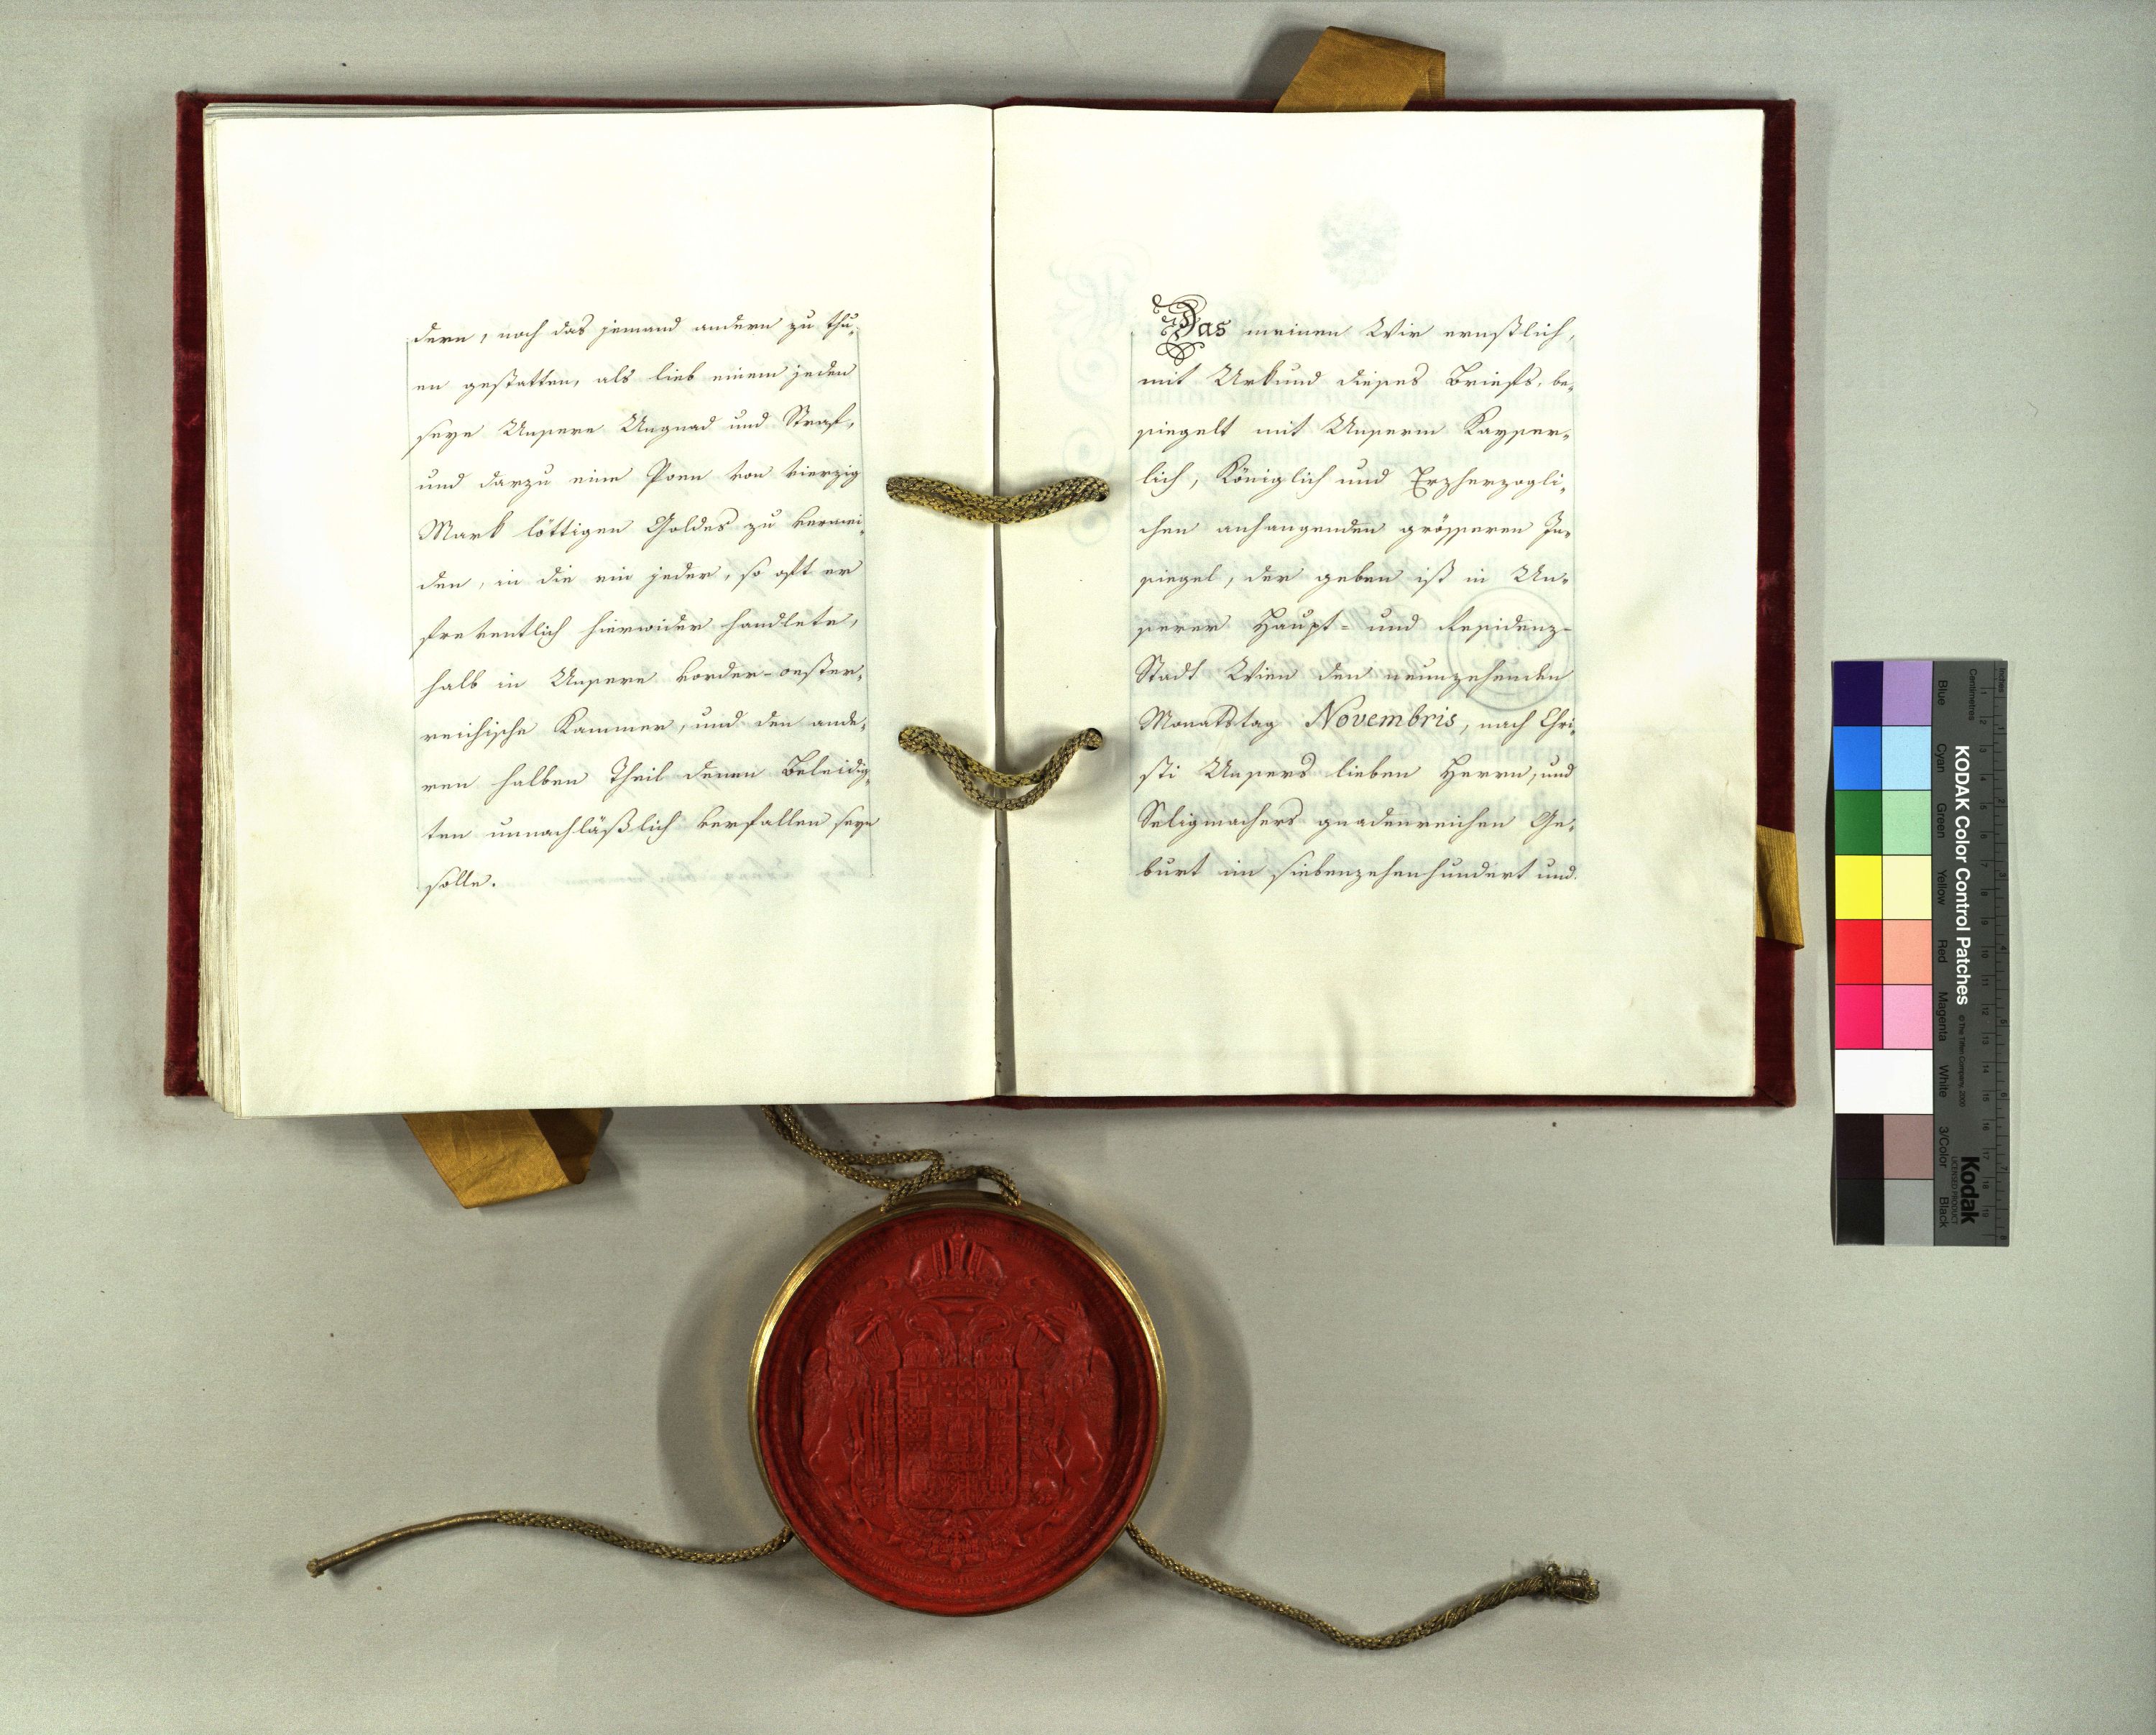 dern, noch das jemand andern zu thu-
en gestatten, als lieb einem jeden
seye Unsere Ungnad und Straf,
und darzu eine Poen von vierzig
Mark löttigen Goldes zu vermei-
den, in die ein jeder, so oft er
freventlich hierwider handlete,
halb in Unsere vorder-oester-
reichische Kammer, und den ande-
ren halben Theil denen Beleidig-
ten unnachläßlich verfallen seye
solle.
Das meinen Wir ernstlich,
mit Urkund dieses Briefs, be-
siegelt mit Unserm Kayser-
lich, Königlich und Erzherzogli-
chen anhangenden grösseren In-
siegel, der geben ist in Un-
serer Haupt- und Residenz-
Stadt Wien den neunzehenden
Monatstag Novembris, nach Chri-
sti Unsers lieben Herrn, und
Seligmachers gnadenreichen Ge-
burt im siebenzehenhundert und
KODAK Color Control Patches
© The Tiffen Company, 2000
Kodak
LICENSED PRODUCT
Blue
Cyan
Green
Yellow
Red
Magenta
White
3/Color
Black
Inches
Centimetres